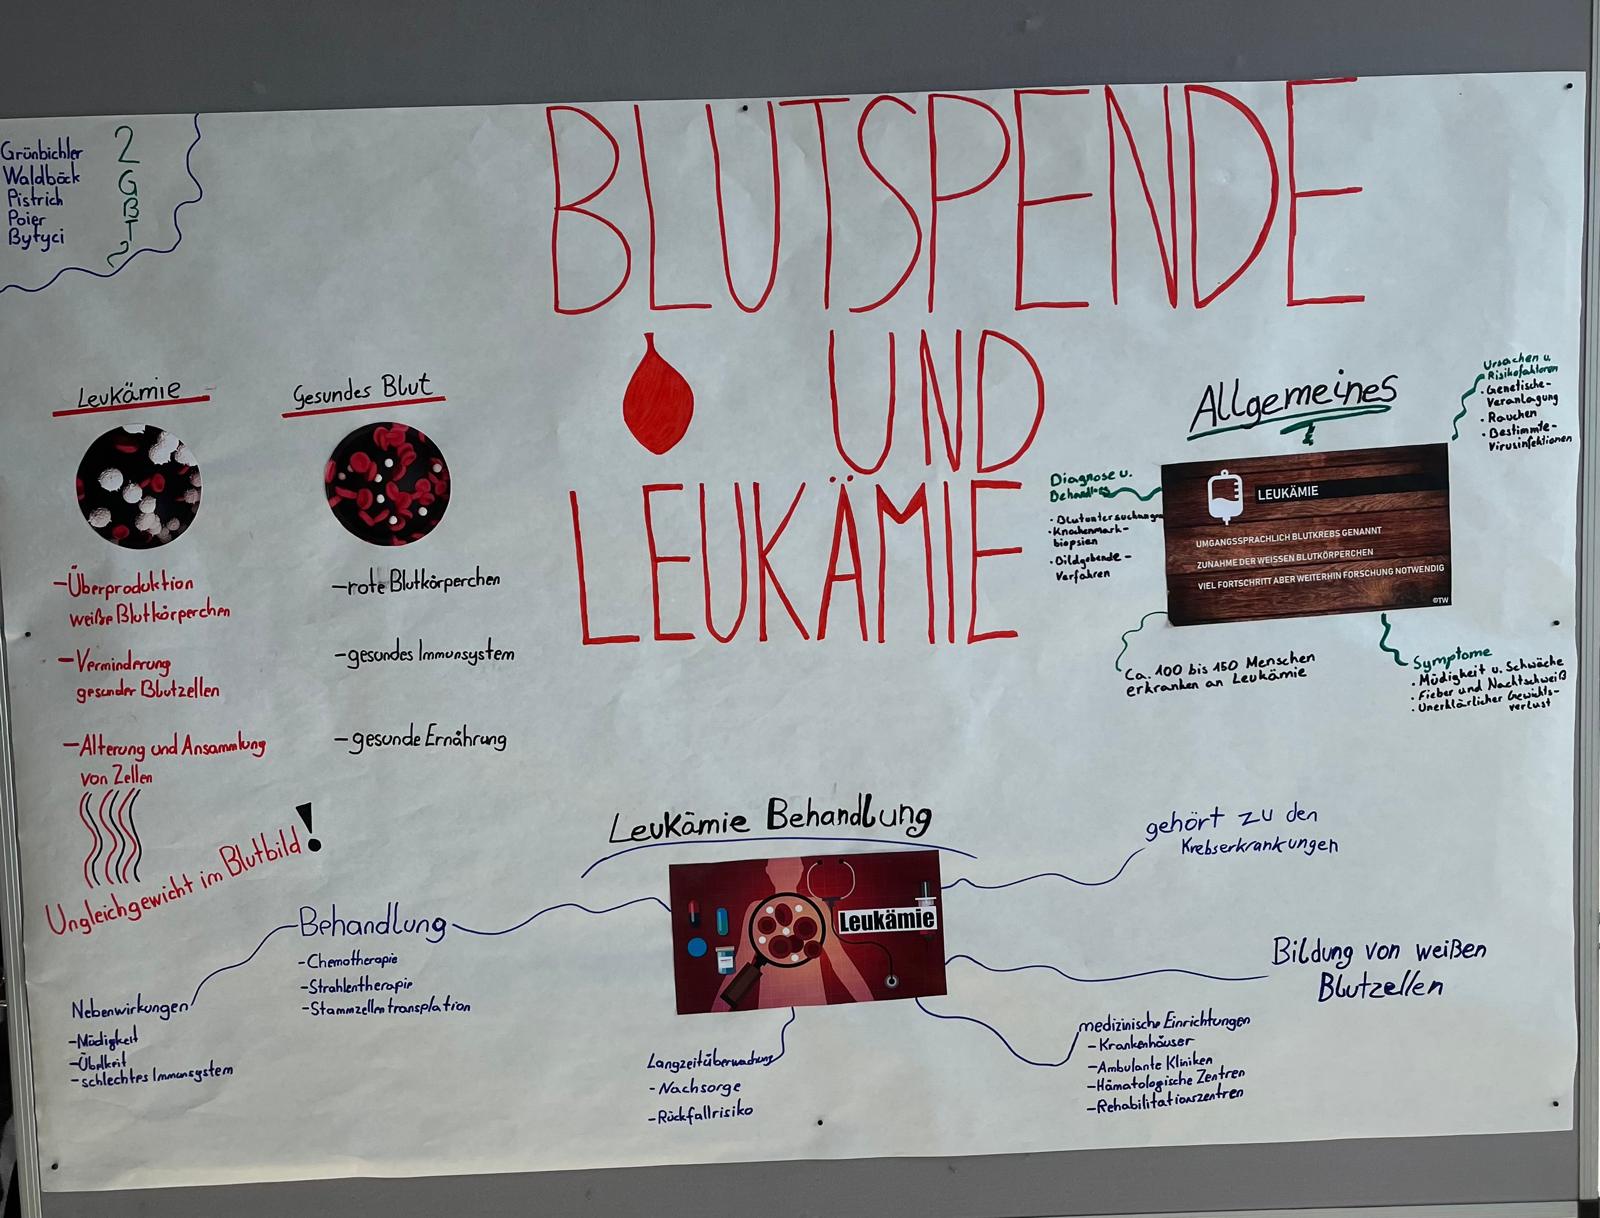 BLUTSPENDE
UND
LEUKÄMIE
Grünbichler
Waldbäck
Pistrich
Poier
Bytyci
2
G
B
T
2
Leukämie
-Überproduktion
weiße Blutkörperchen
-Verminderung
gesunder Blutzellen
-Alterung und Ansammlung
von Zellen
Ungleichgewicht im Blutbild!
Gesundes Blut
-rote Blutkörperchen
-gesundes Immunsystem
-gesunde Ernährung
Allgemeines
Ursachen u.
Risikofaktoren
• Genetische-
Veranlagung
• Rauchen
• Bestimmte-
Virusinfektionen
Diagnose u.
Behandlung
• Blutuntersuchungen
• Knochenmark-
biopsien
• Bildgebende-
Verfahren
LEUKÄMIE
UMGANGSSPRACHLICH BLUTKREBS GENANNT
ZUNAHME DER WEISSEN BLUTKÖRPERCHEN
VIEL FORTSCHRITT ABER WEITERHIN FORSCHUNG NOTWENDIG
©TW
Ca. 100 bis 150 Menschen
erkranken an Leukämie
Symptome
• Müdigkeit u. Schwäche
• Fieber und Nachtschweiß
• Unerklärlicher Gewichts-
verlust
Leukämie Behandlung
Leukämie
Behandlung
-Chemotherapie
-Strahlentherapie
-Stammzellentransplation
Nebenwirkungen
-Müdigkeit
-Übelkeit
-schlechtes Immunsystem
Langzeitüberwachung
-Nachsorge
-Rückfallrisiko
gehört zu den
Krebserkrankungen
Bildung von weißen
Blutzellen
medizinische Einrichtungen
-Krankenhäuser
-Ambulante Kliniken
-Hämatologische Zentren
-Rehabilitationszentren